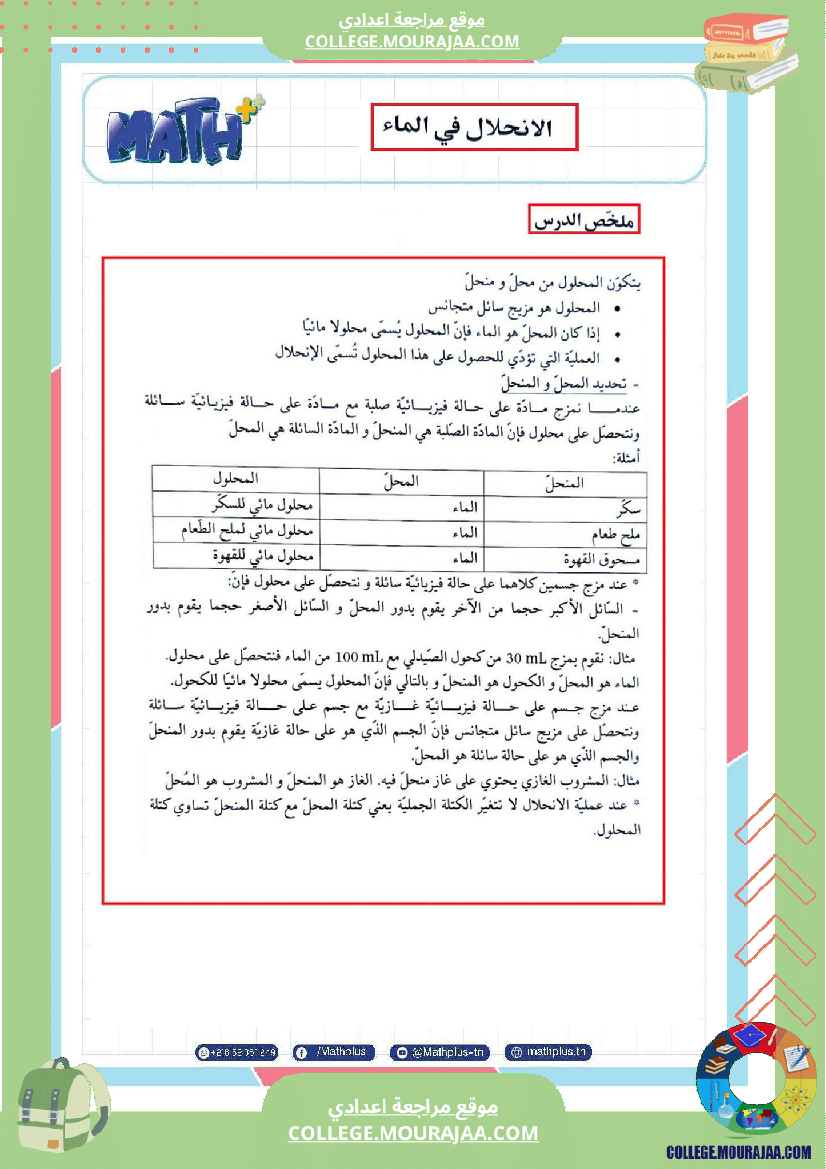 موقع مراجعة اعدادي
COLLEGE.MOURAJAA.COM
MATH+
الانحلال في الماء
ملخّص الدرس
يتكوّن المحلول من محلّ و منحلّ
• المحلول هو مزيج سائل متجانس
• إذا كان المحلّ هو الماء فإنّ المحلول يُسمّى محلولا مائيّا
• العمليّة التي تؤدّي للحصول على هذا المحلول تُسمّى الإنحلال
- تحديد المحلّ و المنحلّ
عندمـــا نمزج مـادّة على حـالة فيزيـائيّة صلبة مع مـادّة على حـالة فيزيـائيّة سـائلة
ونتحصّل على محلول فإنّ المادّة الصّلبة هي المنحلّ و المادّة السائلة هي المحلّ
أمثلة:
المنحلّ المحلّ المحلول
سكّر الماء محلول مائي للسكّر
ملح طعام الماء محلول مائي لملح الطّعام
مسحوق القهوة الماء محلول مائي للقهوة
* عند مزج جسمين كلاهما على حالة فيزيائيّة سائلة و نتحصّل على محلول فإنّ:
- السّائل الأكبر حجما من الآخر يقوم بدور المحلّ و السّائل الأصغر حجما يقوم بدور
المنحلّ.
مثال: نقوم بمزج 30 mL من كحول الصّيدلي مع 100 mL من الماء فنتحصّل على محلول.
الماء هو المحلّ و الكحول هو المنحلّ و بالتالي فإنّ المحلول يسمّى محلولا مائيّا للكحول.
عند مزج جـسم على حـالة فيزيـائيّة غـازيّة مع جسم على حـالة فيزيـائيّة سـائلة
ونتحصّل على مزيج سائل متجانس فإنّ الجسم الذّي هو على حالة غازيّة يقوم بدور المنحلّ
والجسم الذّي هو على حالة سائلة هو المحلّ.
مثال: المشروب الغازي يحتوي على غاز منحلّ فيه. الغاز هو المنحلّ و المشروب هو المُحلّ
* عند عمليّة الانحلال لا تتغيّر الكتلة الجمليّة يعني كتلة المحلّ مع كتلة المنحلّ تساوي كتلة
المحلول.
/Mathplus
@Mathplus-tn
mathplus.tn
موقع مراجعة اعدادي
COLLEGE.MOURAJAA.COM
COLLEGE.MOURAJAA.COM